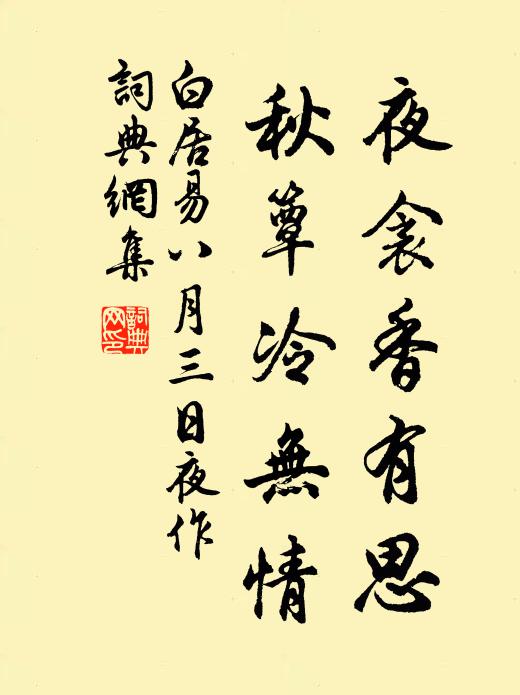 夜衾香有思
秋簟冷無情
白居易八月三日夜作
詞典網集
詞典
网印